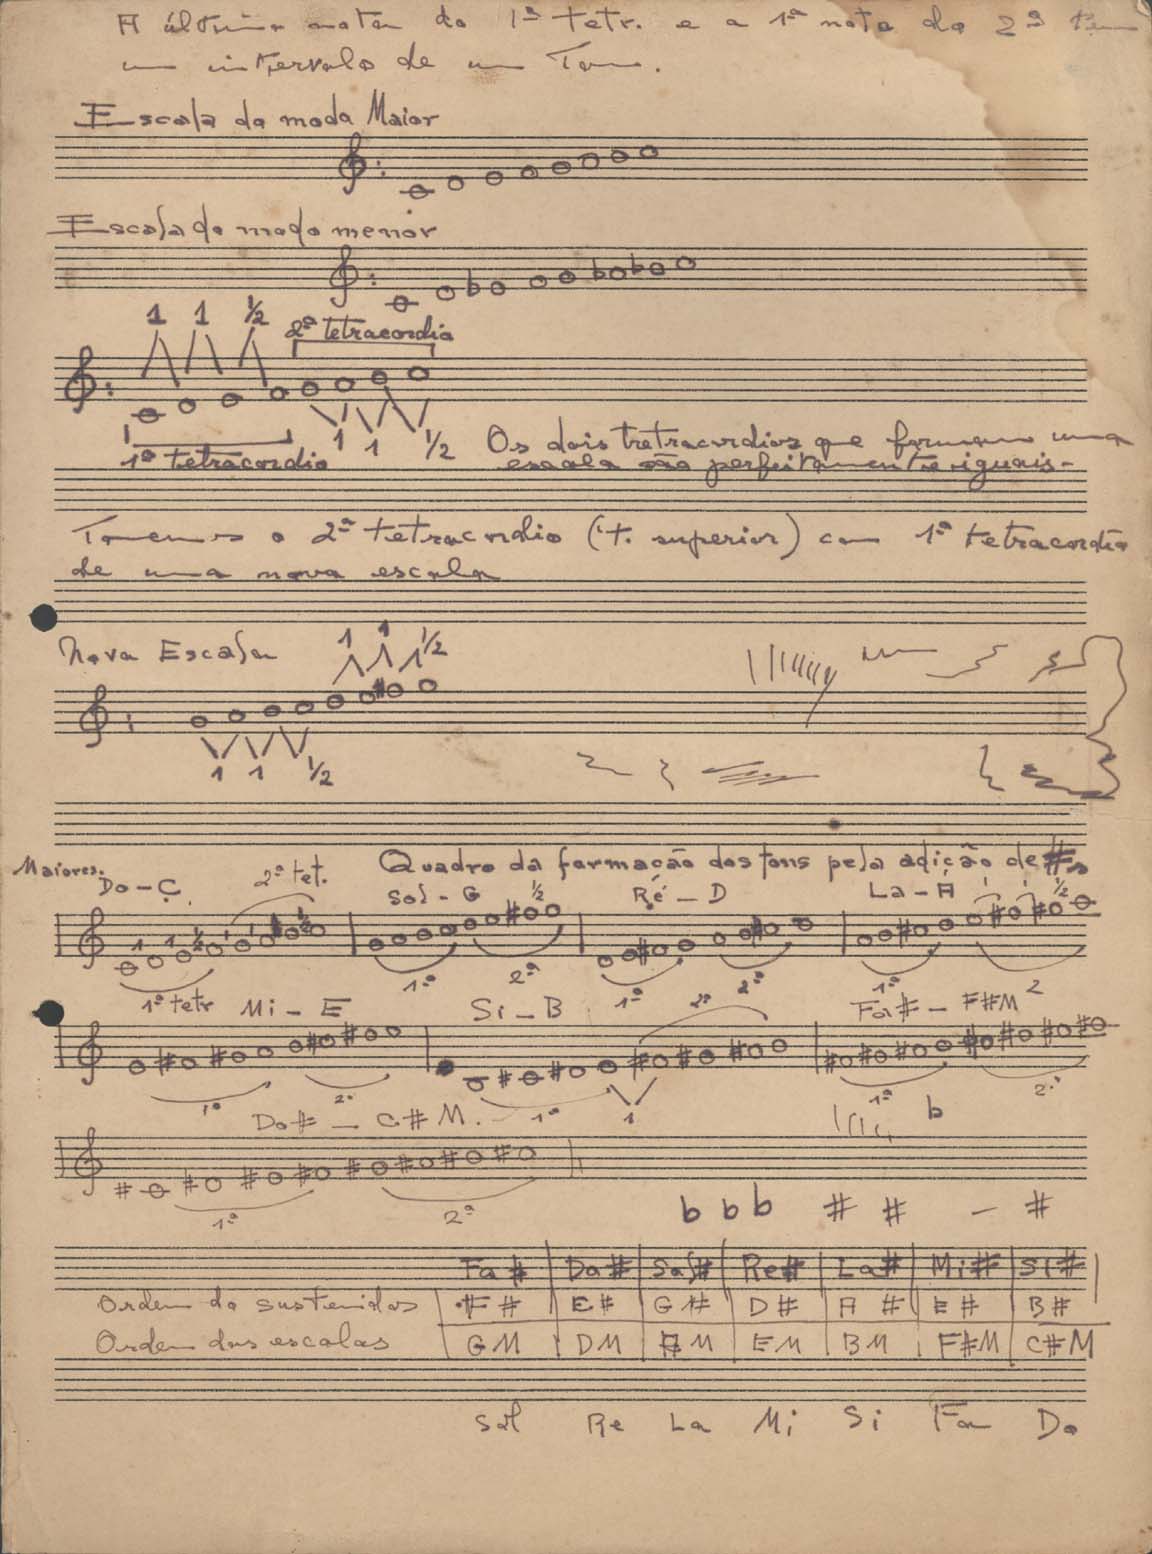 A última nota do 1º tetr. e a 1ª nota do 2º tem
um intervalo de um Tom.
Escala do modo Maior
Escala do modo menor
1 1 ½ 2º tetracordio
1 1 ½
1º tetracordio
Os dois tretracordios que formam uma
escala são perfeitamente iguais-
Tomemos o 2º tetracordio (t. superior) com 1º tetracordio
de uma nova escala
Nova Escala 1 1 ½
1 1 ½
Quadro da formação dos tons pela adição de #s
Maiores.
Do-C 2º tet. Sol-G ½ Ré-D La-A ½
1 1 ½ 1 1 ½
1º tetr 1º 2º 1º 2º 1º 2
Mi-E Si-B 2º Fa#-F#M
1º 2º 1º 1 1º 2º
Do#-C#M. b
1º 2º
b b b # # - #
Fa# Do# Sol# Re# La# Mi# Si#
Ordem do sustenidos F# E# G# D# A# E# B#
Ordem das escalas GM DM AM EM BM F#M C#M
Sol Re La Mi Si Fa Do